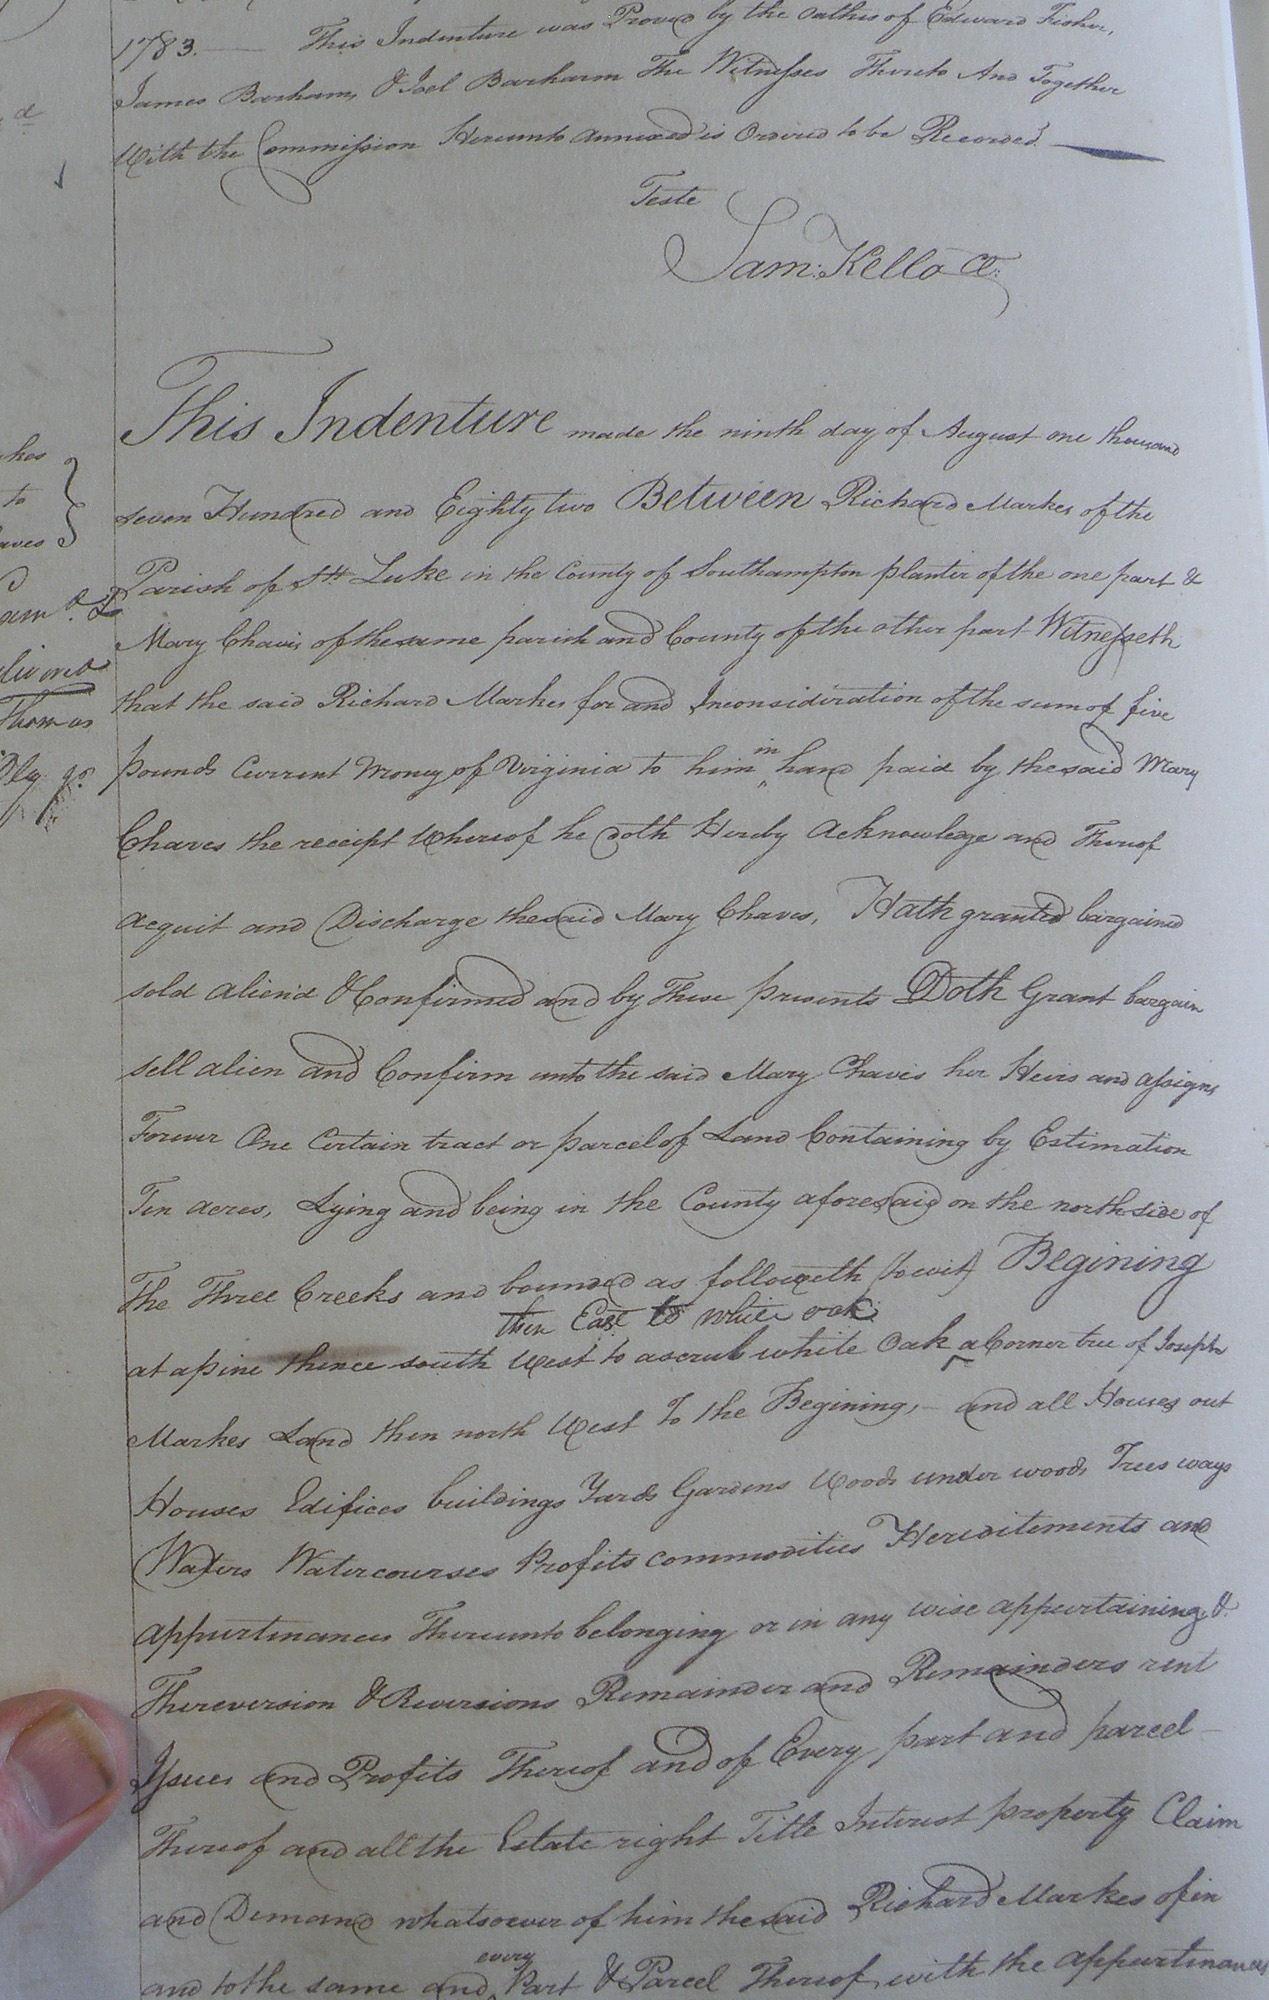 1783. — This Indenture was Proved by the Oathes of Edward Fisher,
James Barham, & Joel Barham The Witnesses Thereto And Together
With the Commission Hereunto annexed is Ordered to be Recorded
Teste
Sam: Kello Ct.
This Indenture made the ninth day of August one thousand
seven Hundred and Eighty two Between Richard Markes of the
Parish of St Luke in the County of Southampton planter of the one part &
Mary Chavis of the same parish and County of the other part Witnesseth
that the said Richard Markes for and Inconsideration of the sum of five
pounds Current Money of Virginia to him in hand paid by the said Mary
Chaves the receipt Whereof he doth Hereby Acknowledge and Thereof
Acquit and Discharge the said Mary Chaves, Hath granted bargained
sold aliend & Confirmed and by These presents Doth Grant bargain
sell alien and Confirm unto the said Mary Chaves her Heirs and assigns
Forever One Certain tract or parcel of Land Containing by Estimation
Ten acres, Lying and being in the County aforesaid on the north side of
The Three Creeks and bounded as followeth (to wit) Begining
then East to white oak
at a pine thence south West to a scrub white Oak a Corner tree of Joseph
Markes Land then north West To the Begining, — and all Houses out
Houses Edifices buildings Yards Gardens Woods under woods Trees ways
Waters Watercourses Profits commodities Hereditements and
appurtinances Thereunto belonging or in any wise appurtaining, &
Thereversion & Reversions Remainder and Remainders rent
Issues and Profits Thereof and of Every part and parcel —
Thereof and all the Estate right Title Interest property Claim
and Demand whatsoever of him the said Richard Markes of in
and to the same and every Part & Parcel Thereof with the appurtinances
to
Thomas